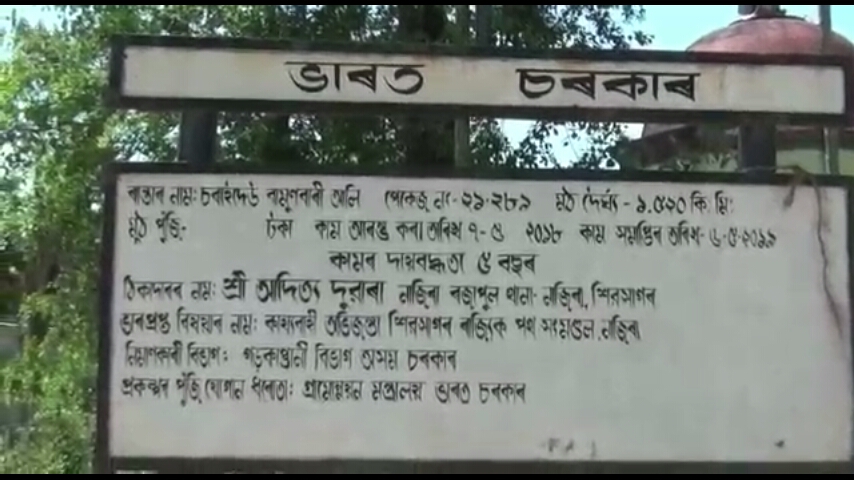 ভাৰত চৰকাৰ
ৰাস্তাৰ নাম: চৰাইদেউ বামুণবাৰী আলি পেকেজ নং- ২১-২৮৯ মুঠ দৈৰ্ঘ্য - ১.৫২০ কি. মি:
মুঠ পুঁজি- টকা কাম আৰম্ভ কৰা তাৰিখ ৭-৫ ২০১৮ কাম সমাপ্তিৰ তাৰিখ- ৬-৫-২০১৯
কামৰ দায়বদ্ধতা ৫ বছৰ
ঠিকাদৰৰ নাম: শ্ৰী আদিত্য দুৱাৰা নাজিৰা ৰজাপুল থানা- নাজিৰা, শিৱসাগৰ
ভাৰপ্ৰাপ্ত বিষয়াৰ নাম: কাৰ্য্যবাহী অভিজন্তা শিৱসাগৰ ৰাজ্যিক পথ সংমণ্ডল নাজিৰা
নিমাণকাৰী বিভাগ: গড়কাপ্তানী বিভাগ অসম চৰকাৰ
প্ৰকল্পৰ পুঁজি যোগান ধৰোতা: গ্ৰামোন্নয়ন মন্ত্ৰালয় ভাৰত চৰকাৰ